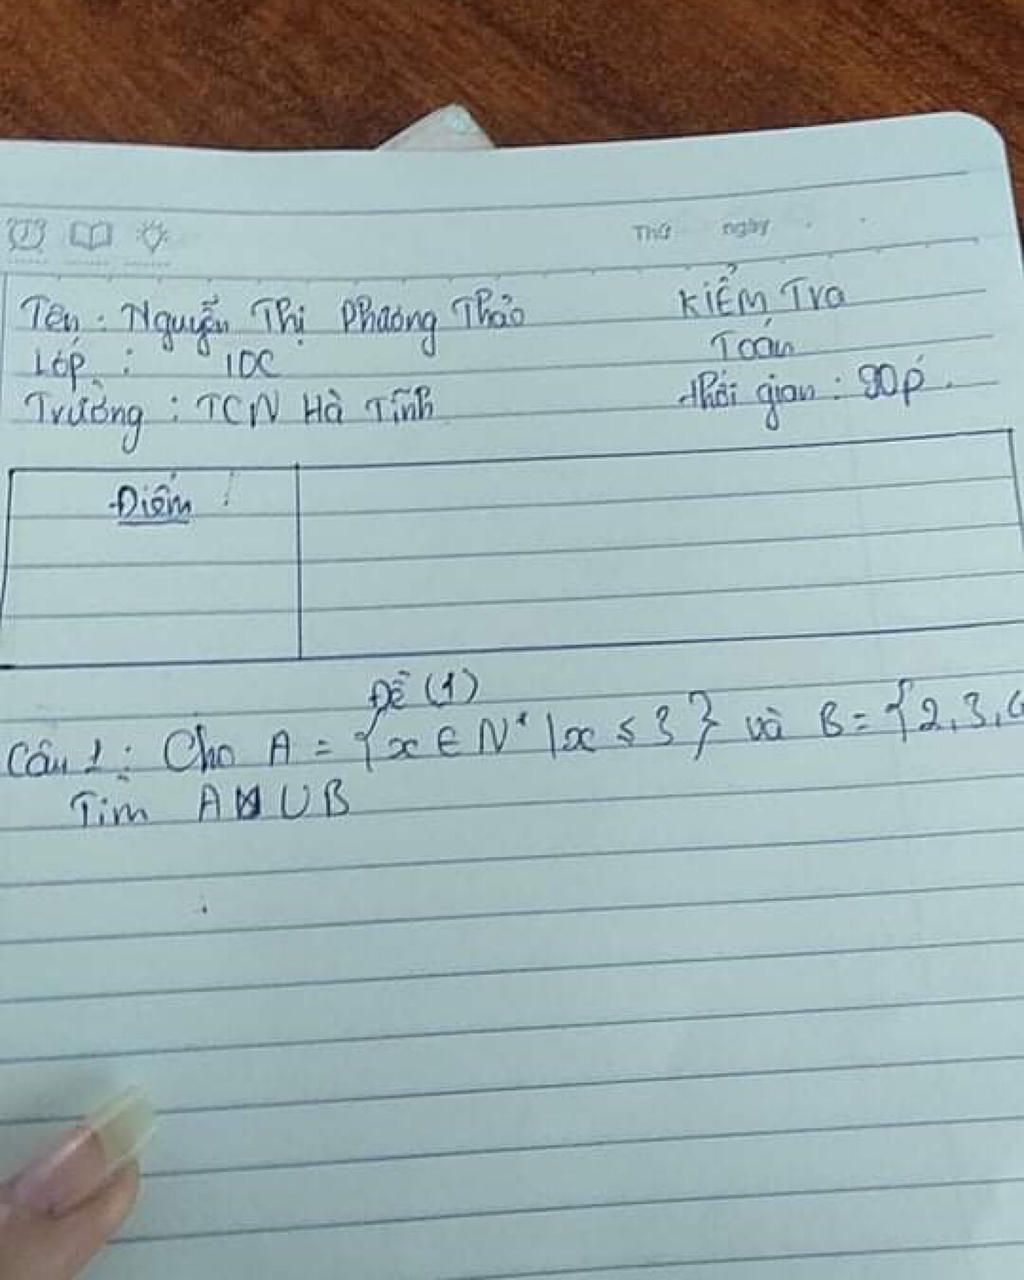 Thứ ngày
Tên : Nguyễn Thị Phương Thảo KIỂM Tra
Lớp : 10C Toán
Trường : TCN Hà Tĩnh thời gian : 90p .
Điểm
Đề (1)
Câu 1 : Cho A = {x ∈ N* | x ≤ 3 } và B = {2, 3,
Tìm A ∪ B